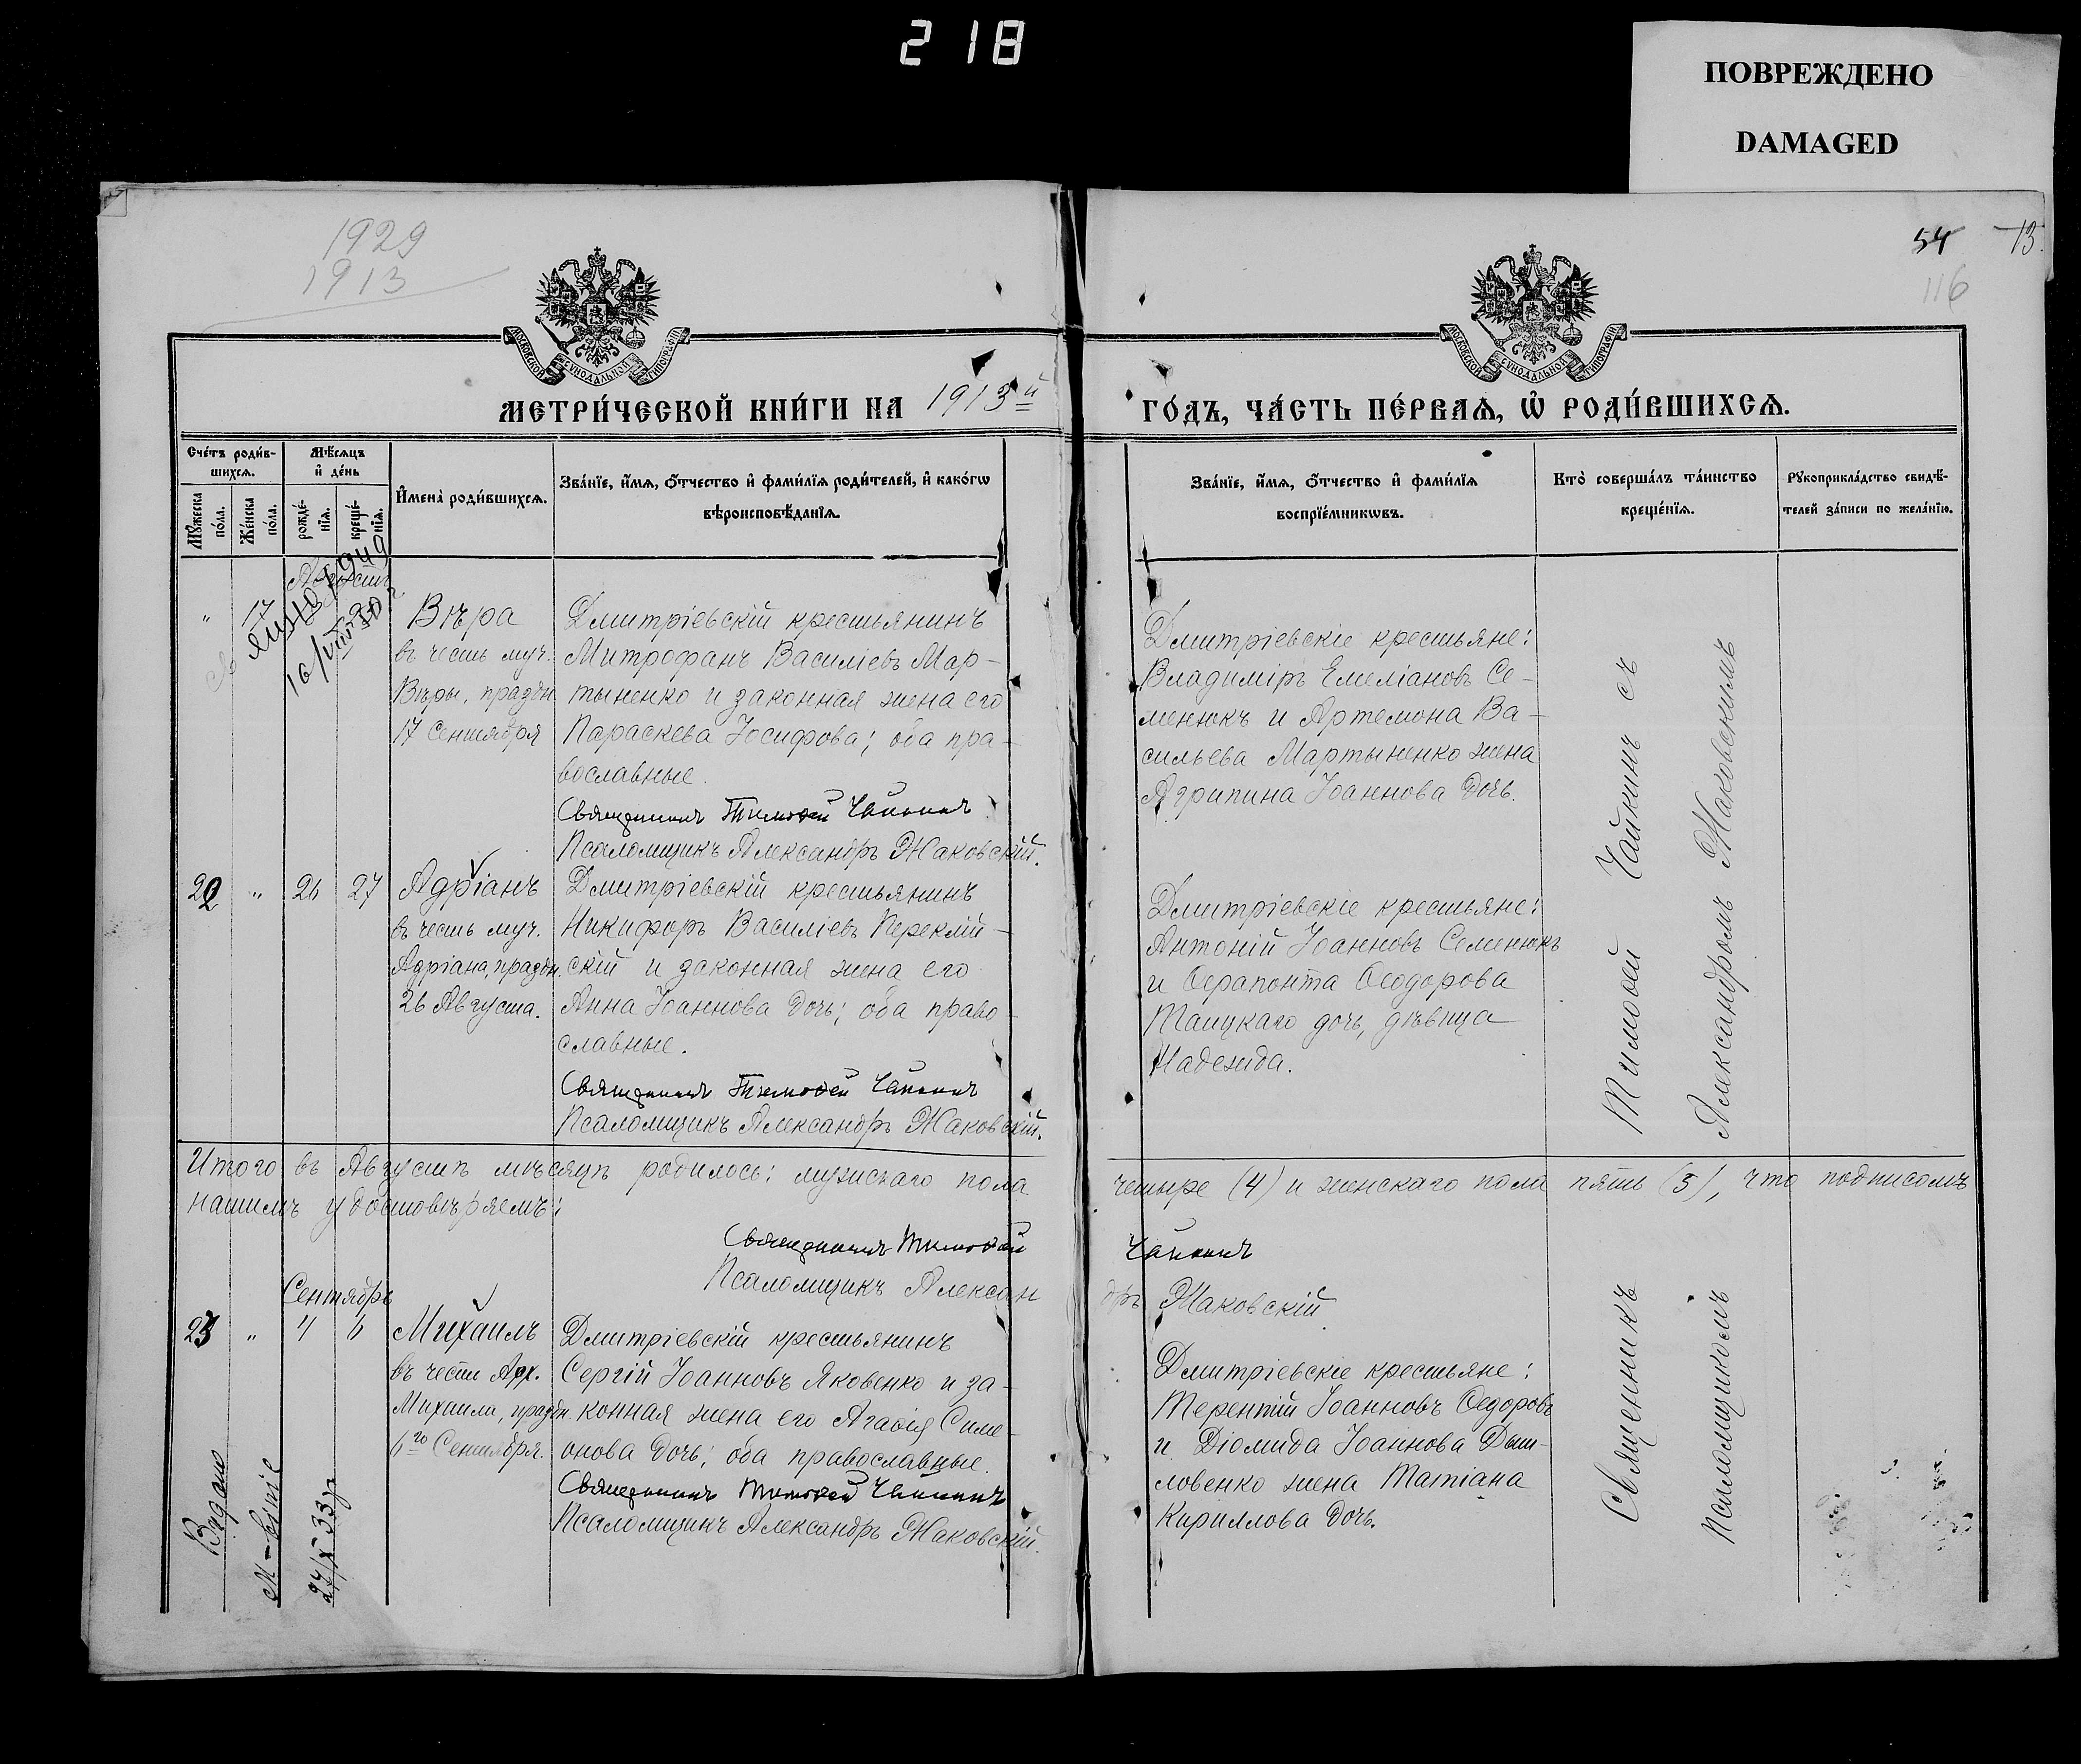 218
ПОВРЕЖДЕНО
DAMAGED
1929
1913
54
13.
116
МОСКОВСКОЙ СѴНОДАЛЬНОЙ ТИПОГРАФІИ
МОСКОВСКОЙ СѴНОДАЛЬНОЙ ТИПОГРАФІИ
МЕТРИ́ЧЕСКОЙ КНИ́ГИ НА 1913й
ГО́ДЪ, ЧА́СТЬ ПЕ́РВАѦ, Ѡ҆ РОДИ́ВШИХСѦ.
Сче́тъ роди́в-
шихсѧ.
Мѣ́сѧцъ
и҆ де́нь
Мꙋ́жеска
по́ла.
Же́нска
по́ла.
рожде́-
нїѧ.
креще́-
нїѧ.
И҆мена̀ роди́вшихсѧ.
Зва́нїе, и҆́мѧ, ѻ҆́тчество и҆ фами́лїѧ роди́телей, и҆ како́гѡ
вѣроисповѣ́данїѧ.
Зва́нїе, и҆́мѧ, ѻ҆́тчество и҆ фами́лїѧ
воспрїе́мникѡвъ.
Кто̀ соверша́лъ та́инство
креще́нїѧ.
Рꙋкоприкла́дство свидѣ́-
телей за́писи по жела́нїю.
Августъ
" 17
16/VIII
Вѣра
въ честь муч.
Вѣры, праздн.
17 Сентября
Дмитріевскій крестьянинъ
Митрофанъ Василіевъ Мар-
тыненко и законная жена его
Параскева Іосифова; оба пра-
вославные.
Священникъ Тимоѳей Чайкинъ
Псаломщикъ Александръ Жаковскій.
Дмитріевскіе крестьяне:
Владиміръ Емеліановъ Се-
менюкъ и Артемона Ва-
сильева Мартыненко жена
Агрипина Іоаннова дочь.
22 " 26 27
Адріанъ
въ честь муч.
Адріана, праздн.
26 Августа.
Дмитріевскій крестьянинъ
Никифоръ Василіевъ Переклій-
скій и законная жена его
Анна Іоаннова дочь; оба право-
славные.
Священникъ Тимоѳей Чайкинъ
Псаломщикъ Александръ Жаковскій.
Дмитріевскіе крестьяне:
Антоній Іоанновъ Семенюкъ
и Ѳерапонта Ѳеодорова
Таицкаго дочь, дѣвица
Надежда.
Тимоѳей Чайкинъ съ
Александромъ Жаковскимъ
Итого въ Августѣ мѣсяцѣ родилось: мужскаго пола четыре (4) и женскаго пола пять (5), что подписомъ
нашимъ удостовѣряемъ:
Священникъ Тимоѳей Чайкинъ
Псаломщикъ Александръ Жаковскій
Сентябрь
23 " 4 6
Михаилъ
въ честь Арх.
Михаила, праздн.
6го Сентября.
Дмитріевскій крестьянинъ
Сергій Іоанновъ Яковенко и за-
конная жена его Агаѳія Симе-
онова дочь; оба православные.
Священникъ Тимоѳей Чайкинъ
Псаломщикъ Александръ Жаковскій.
Дмитріевскіе крестьяне:
Терентій Іоанновъ Ѳедоровъ
и Діомида Іоаннова Дыш-
ловенко жена Татіана
Кириллова дочь.
Священникъ
Псаломщикомъ
Видано
27/X 33 р